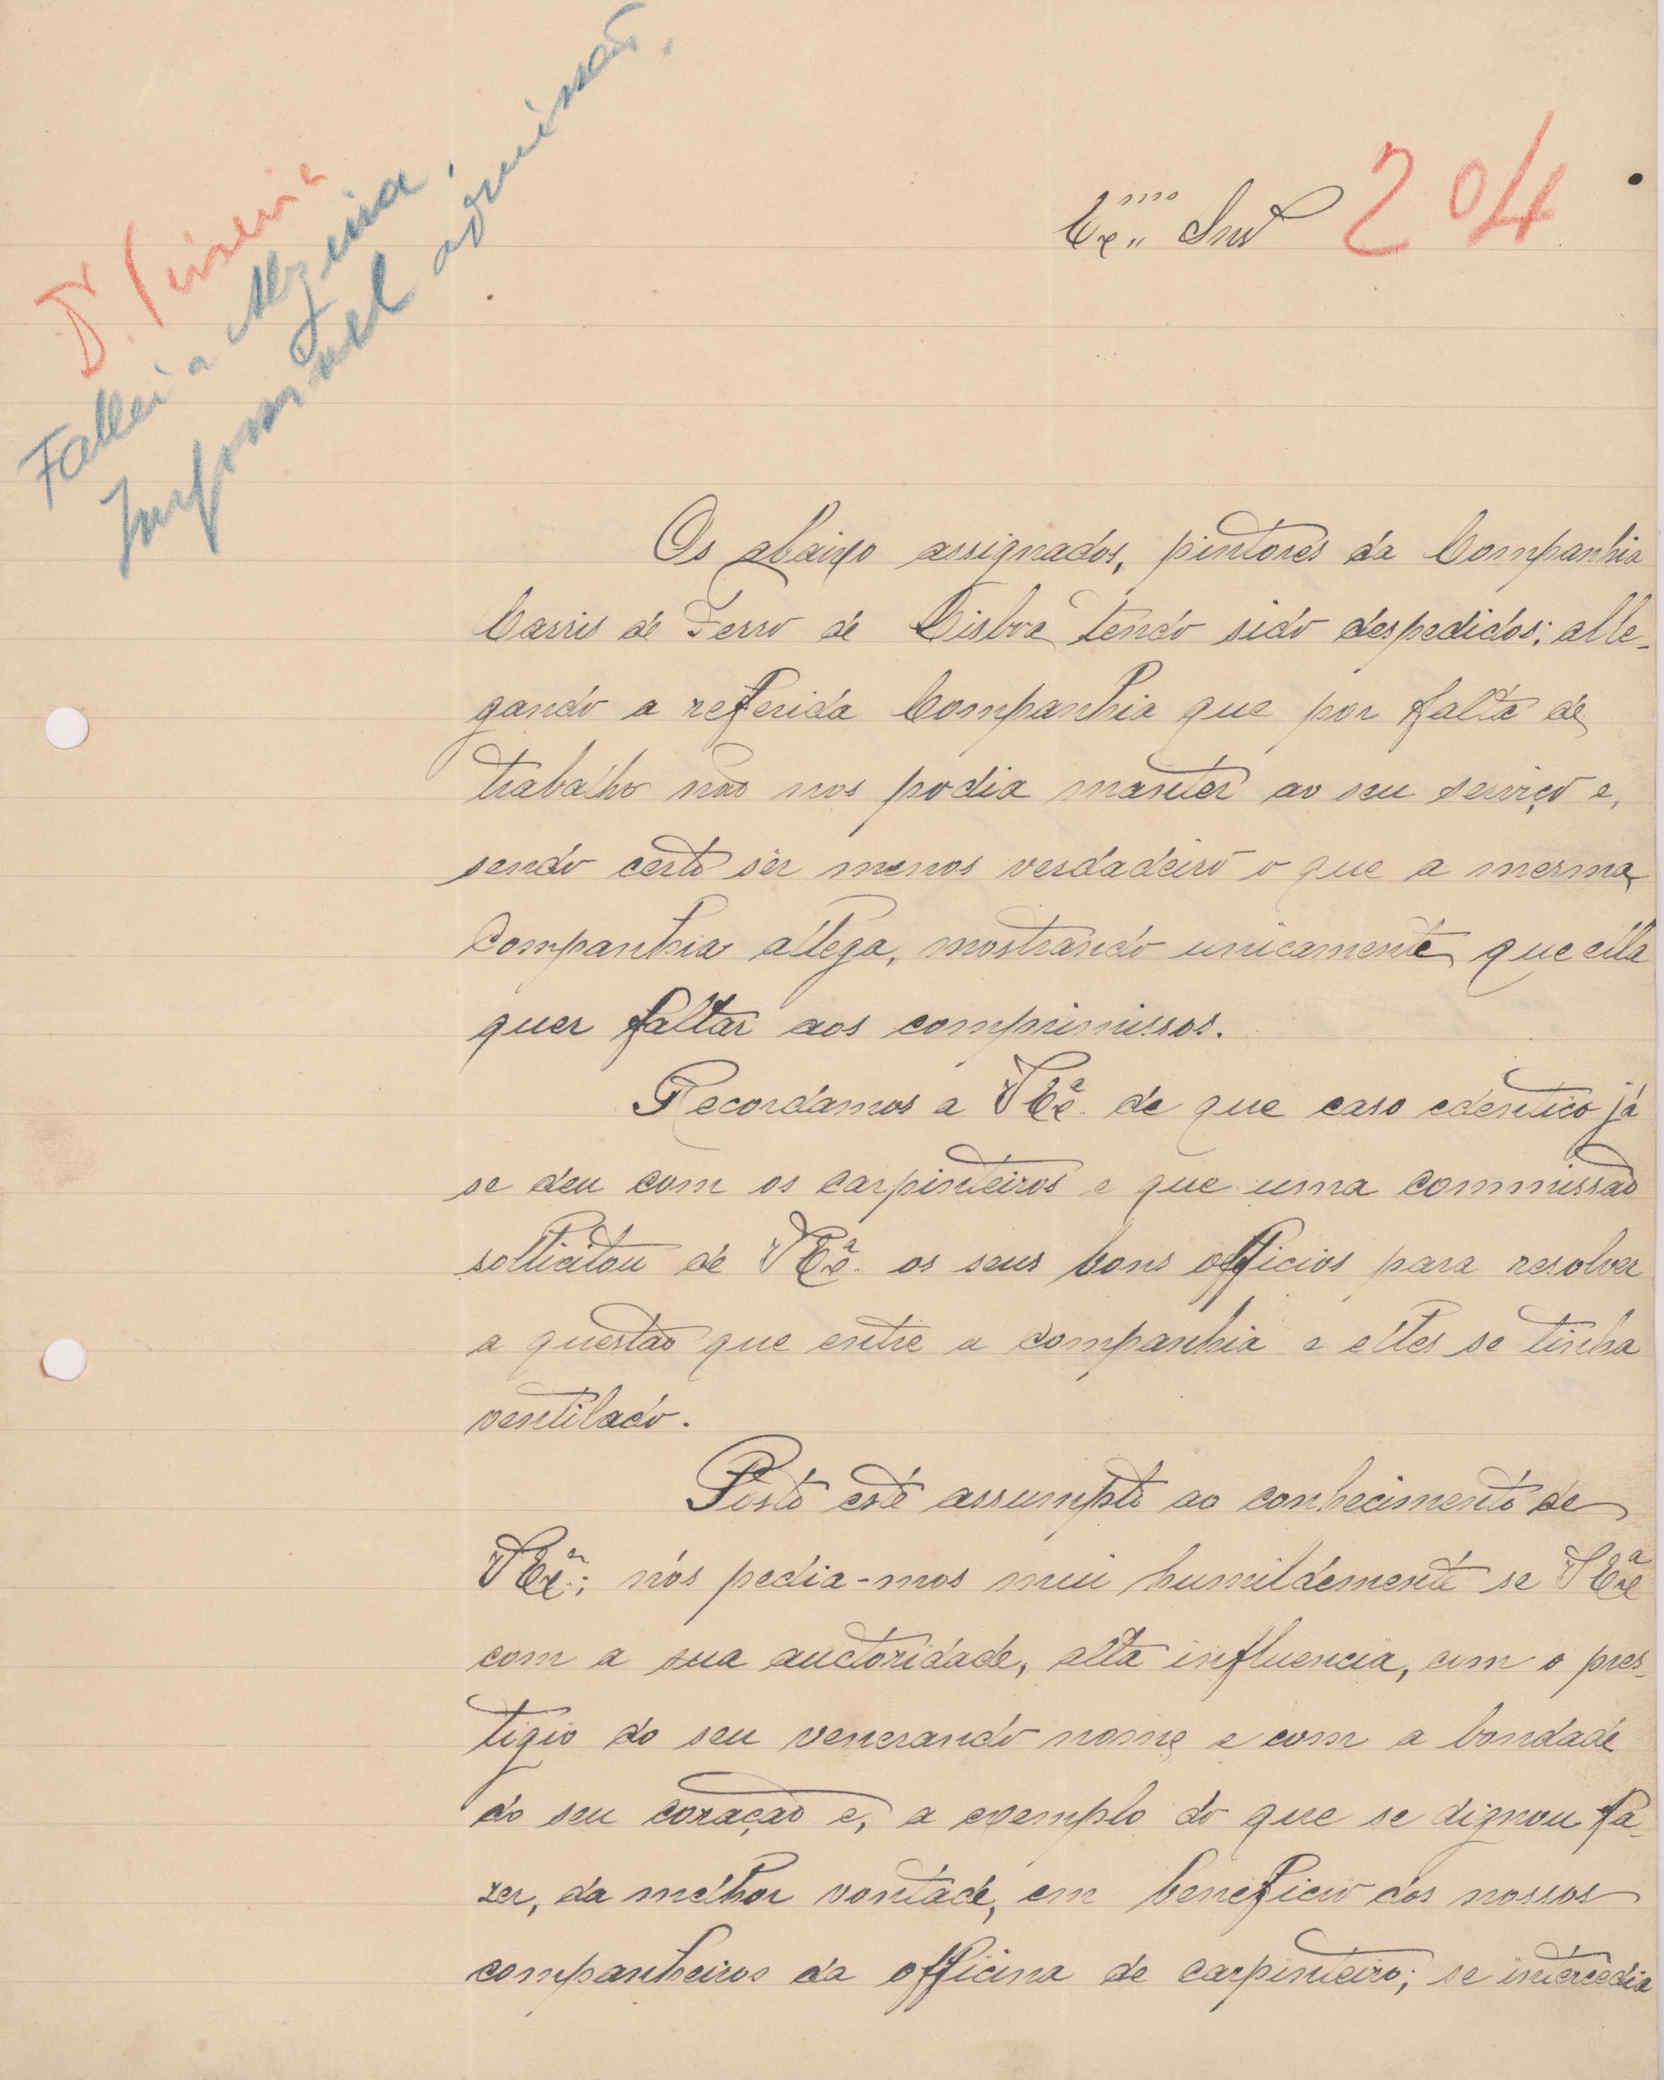 204
Ex.mo Snr
Fallei a
Os abaixo assignados, pintores da Companhia
Carris de Ferro de Lisboa tendo sido despedidos; alle-
gando a referida Companhia que por falta de
trabalho não nos podia manter ao seu serviço e,
sendo certo ser menos verdadeiro o que a mesma
Companhia allega, mostrando unicamente que ella
quer faltar aos comprimissos.
Recordamos a V Ex.ª de que caso edentico já
se deu com os carpinteiros e que uma commissão
sollicitou de V Ex.ª os seus bons officios para resolver
a questão que entre a companhia e elles se tinha
ventilado.
Posto este assumpto ao conhecimento de
V Ex.ª; nós pedia-mos mui humildemente se V Ex.ª
com a sua auctoridade, alta influencia, com o pres-
tigio do seu venerando nome e com a bondade
do seu coração e, a exemplo do que se dignou fa-
zer, da melhor vontade, em beneficio dos nossos
companheiros da officina de carpinteiro; se intercedia